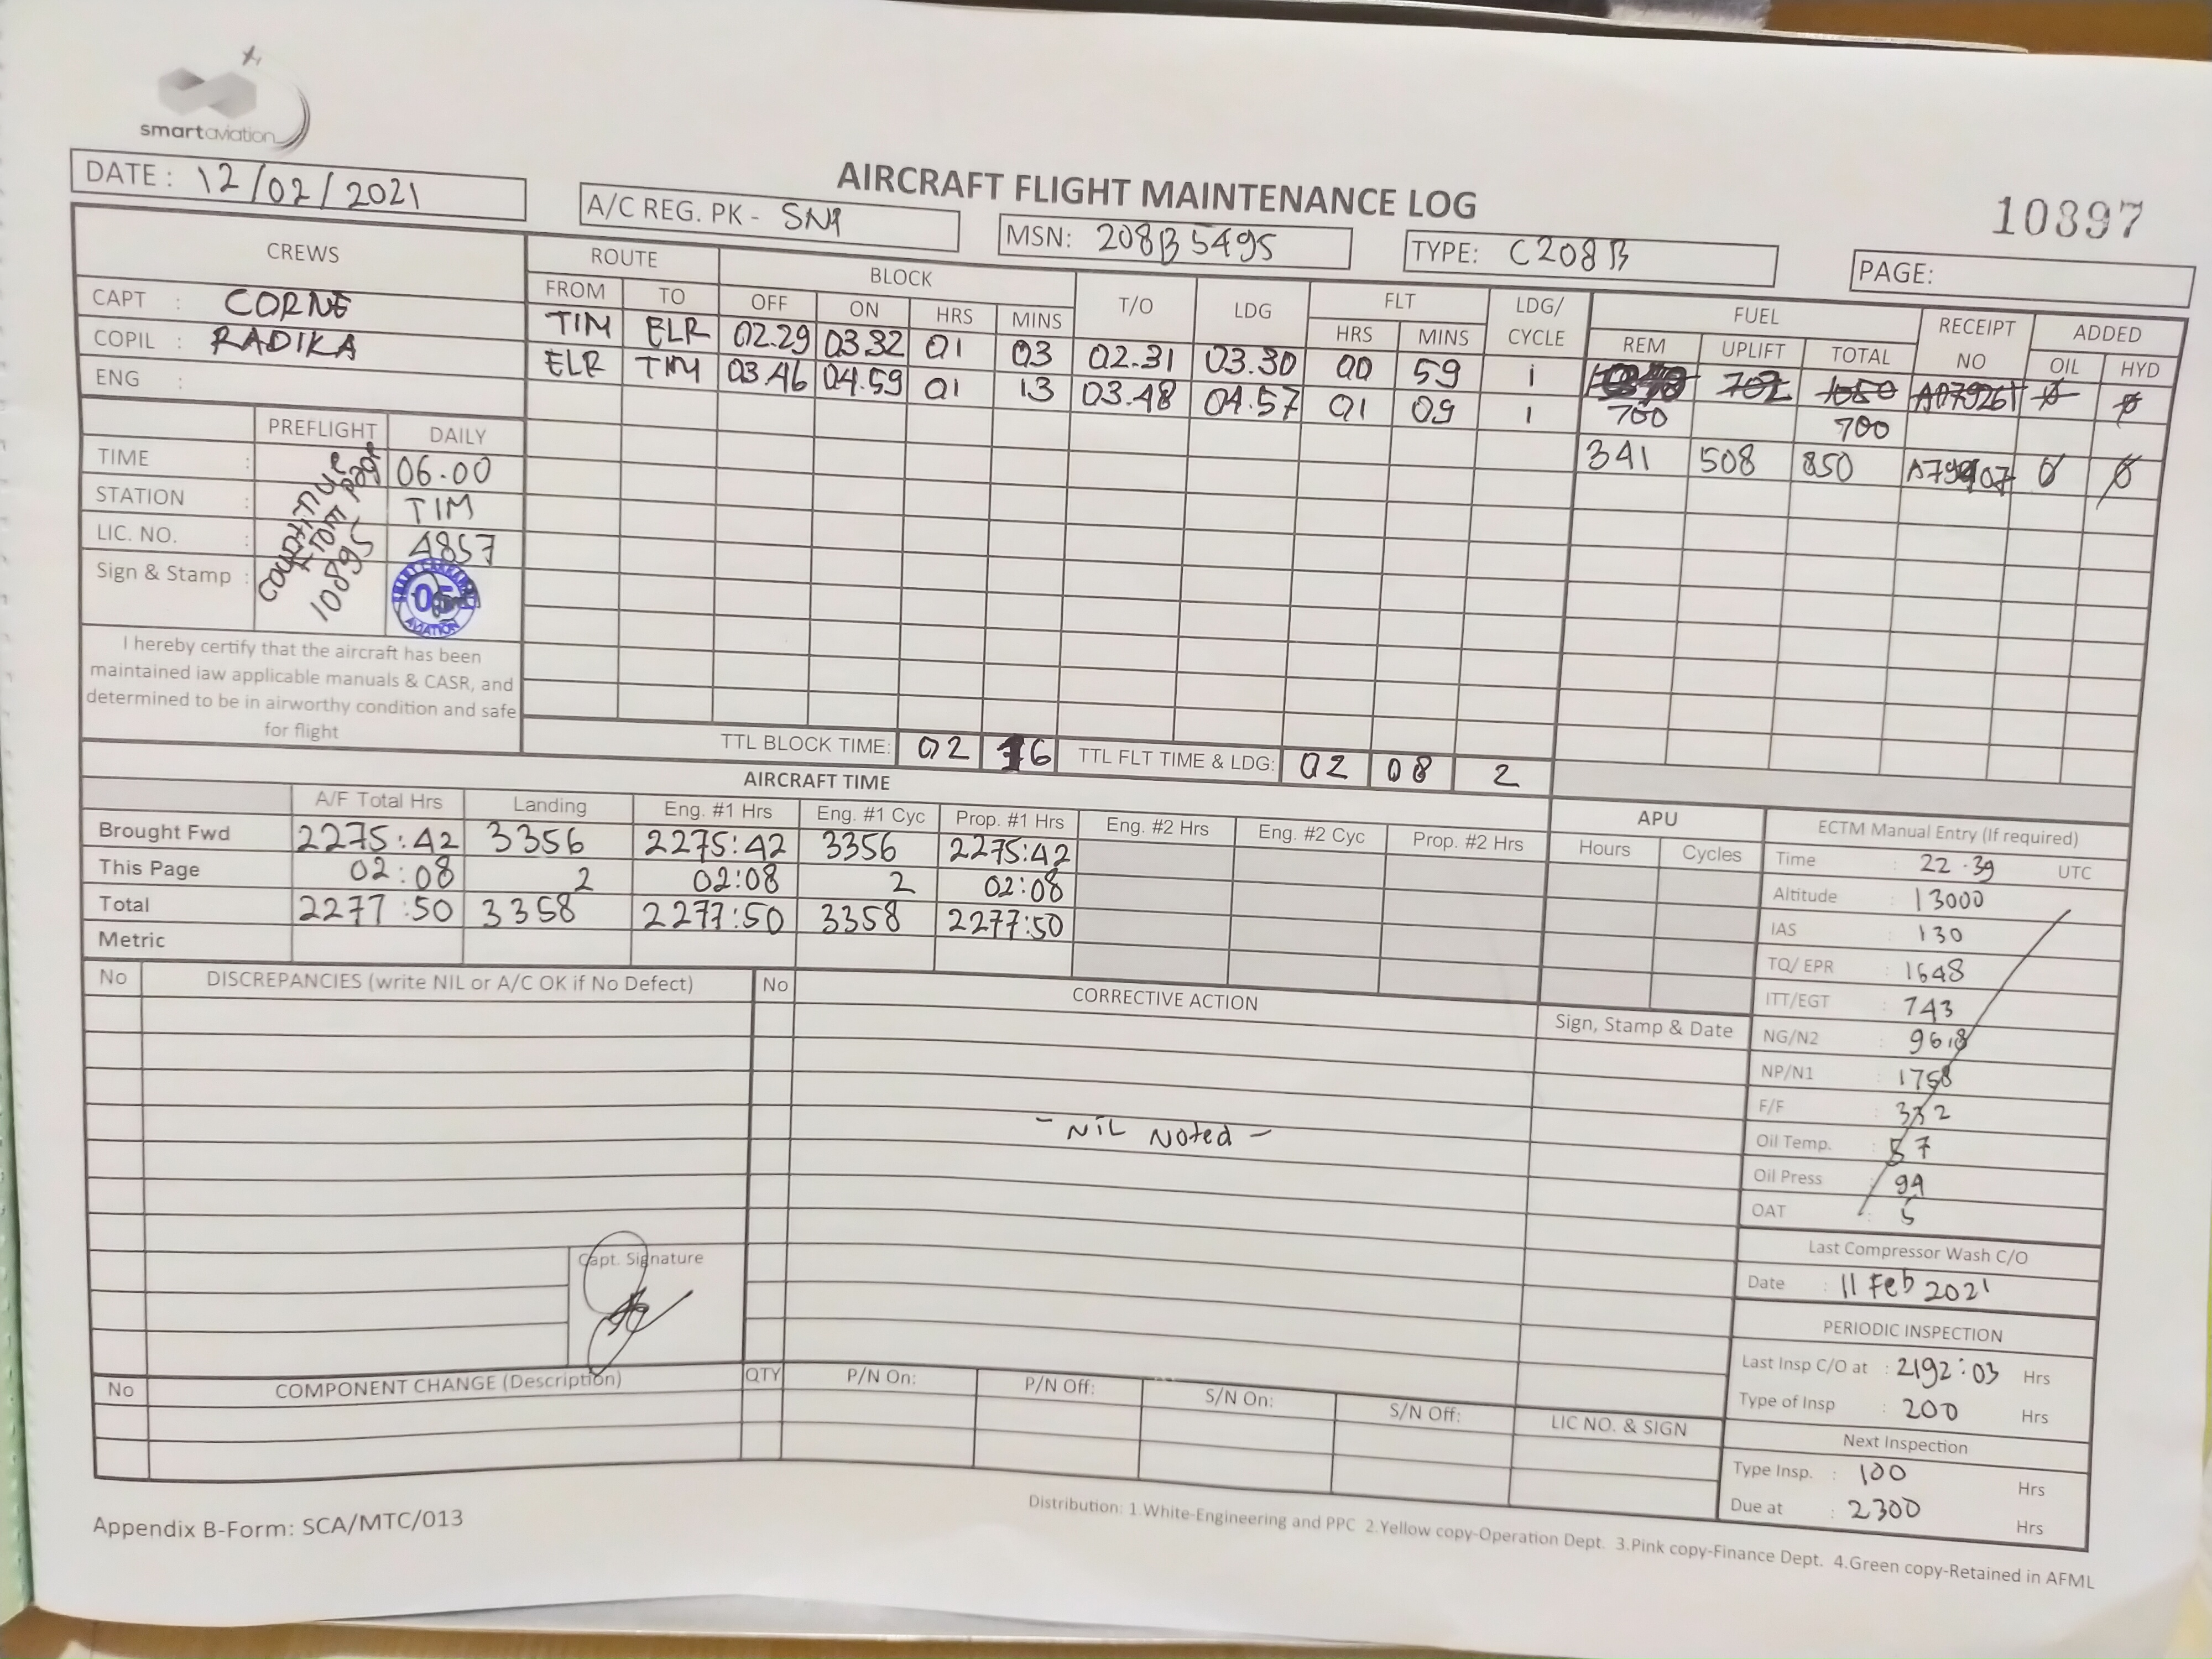 smartaviation
DATE : 12/02/2021
AIRCRAFT FLIGHT MAINTENANCE LOG
10897
A/C REG. PK - SNA
MSN: 208B5495
TYPE: C208B
PAGE:
CREWS
CAPT : CORNE
COPIL : RADIKA
ENG :
ROUTE BLOCK T/O LDG FLT LDG/ CYCLE FUEL RECEIPT NO ADDED
FROM TO OFF ON HRS MINS HRS MINS REM UPLIFT TOTAL OIL HYD
TIM ELR 02.29 03.32 01 03 02.31 03.30 00 59 1 702 1050 Ø Ø
ELR TIM 03.46 04.59 01 13 03.48 04.57 01 09 1 700 700
341 508 850 Ø Ø
PREFLIGHT DAILY
TIME : 06.00
STATION : TIM
LIC. NO. : 4857
Sign & Stamp :
CONTINUE
FROM page
10895
05
AVIATION
I hereby certify that the aircraft has been
maintained iaw applicable manuals & CASR, and
determined to be in airworthy condition and safe
for flight
TTL BLOCK TIME: 02 16 TTL FLT TIME & LDG: 02 08 2
AIRCRAFT TIME
A/F Total Hrs Landing Eng. #1 Hrs Eng. #1 Cyc Prop. #1 Hrs Eng. #2 Hrs Eng. #2 Cyc Prop. #2 Hrs
Brought Fwd 2275:42 3356 2275:42 3356 2275:42
This Page 02:08 2 02:08 2 02:08
Total 2277:50 3358 2277:50 3358 2277:50
Metric
APU
Hours Cycles
ECTM Manual Entry (If required)
Time : 22.39 UTC
Altitude : 13000
IAS : 130
TQ/ EPR : 1648
ITT/EGT : 743
NG/N2 : 96.8
NP/N1 : 1758
F/F : 332
Oil Temp. : 57
Oil Press : 99
OAT : 5
Last Compressor Wash C/O
Date : 11 Feb 2021
PERIODIC INSPECTION
Last Insp C/O at : 2192:03 Hrs
Type of Insp : 200 Hrs
Next Inspection
Type Insp. : 100 Hrs
Due at : 2300 Hrs
No DISCREPANCIES (write NIL or A/C OK if No Defect) No CORRECTIVE ACTION Sign, Stamp & Date
- NIL Noted -
Capt. Signature
No COMPONENT CHANGE (Description) QTY P/N On: P/N Off: S/N On: S/N Off: LIC NO. & SIGN
Appendix B-Form: SCA/MTC/013
Distribution: 1.White-Engineering and PPC 2.Yellow copy-Operation Dept. 3.Pink copy-Finance Dept. 4.Green copy-Retained in AFML